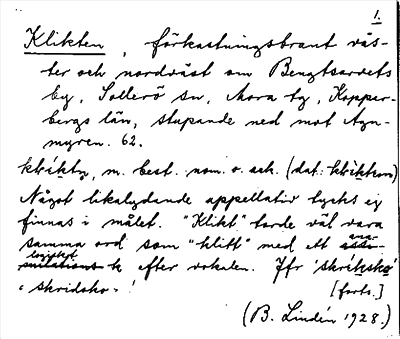 1.
Klikten, förkastningsbrant väs-
ter och nordväst om Bengtsarvets
by, Sollerö sn, Mora tg, Koppar-
bergs län, stupande ned mot Agn-
myren. 62.
m. best. nom. o. ack. (dat.
Något likalydande appellativ tycks ej
finnas i målet. "Klikt" torde väl vara
samma ord som "klitt" med ett
k efter vokalen. Jfr
"skridsko".
[forts.]
(B. Lindén 1928.)